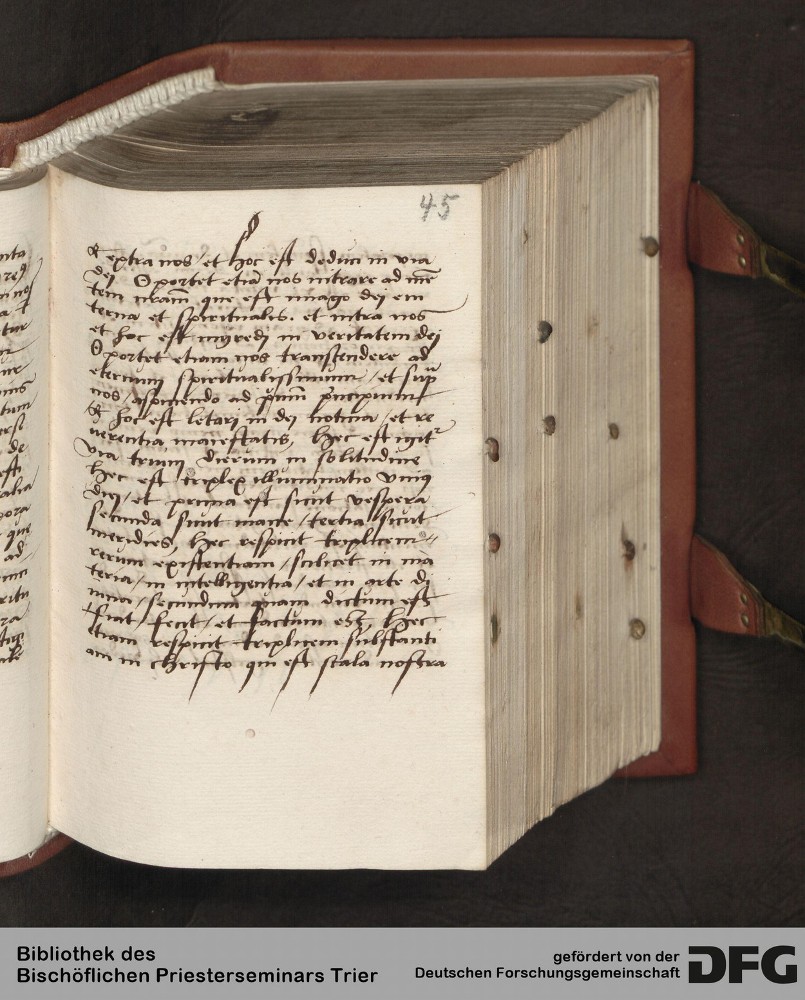 45
& extra nos / et hoc est deduci in via
dei Oportet etiā nos intrare ad mē
tem nrām que est imago dei eui
terna et spiritualis. et intra nos
et hoc est ingredi in veritatem dei
Oportet etiam nos transcendere ad
eternum spiritualissimum / et sup
nos / aspiciendo ad primū principium
& hoc est letari in dei notitia / et re
uerentia maiestatis, Hec est igitr
via trium dierum in solitudine
Hec est triplex illuminatio vnius
diei / et prima est sicut vespera
secunda sicut mane / tertia sicut
meridies, Hec respicit triplicem
rerum existentiam / scilicet in ma
teria / in intelligentia / et in arte di
uina / secundum quam dictum est
fiat / fecit / et factum est, Hec
etiam respicit triplicem substanti
am in christo qui est scala nostra
Bibliothek des
Bischöflichen Priesterseminars Trier
gefördert von der
Deutschen Forschungsgemeinschaft
DFG